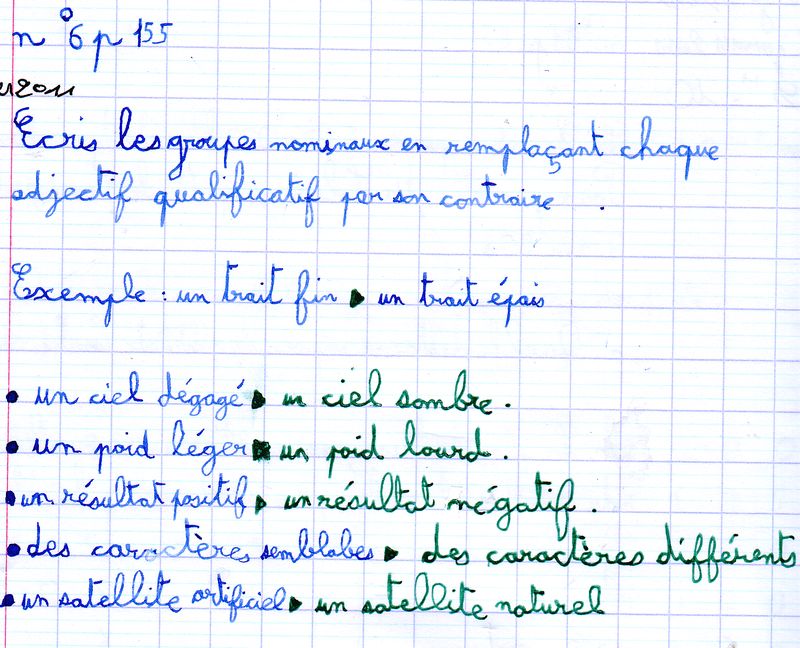 n°6 p 155
2011
Ecris les groupes nominaux en remplaçant chaque
adjectif qualificatif par son contraire .
Exemple : un trait fin ▶ un trait épais
• un ciel dégagé ▶ un ciel sombre .
• un poid léger ▶ un poid lourd .
• un résultat positif ▶ un résultat négatif .
• des caractères semblabes ▶ des caractères différents
• un satellite artificiel ▶ un satellite naturel